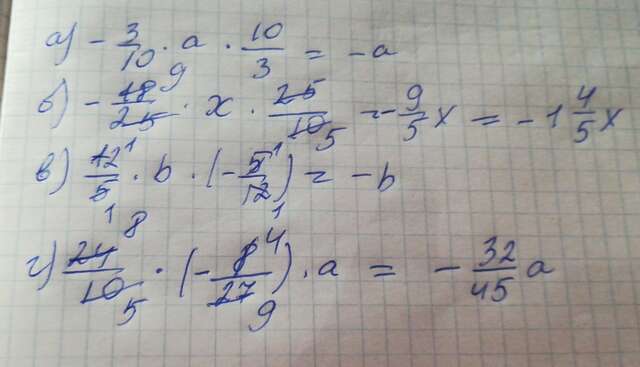 а) - 3/10 · a · 10/3 = -a
б) - 18/25 · x · 25/10 = - 9/5 x = -1 4/5 x
в) 12/5 · b · (- 5/12) = -b
г) 24/10 · (- 8/27) · a = - 32/45 a